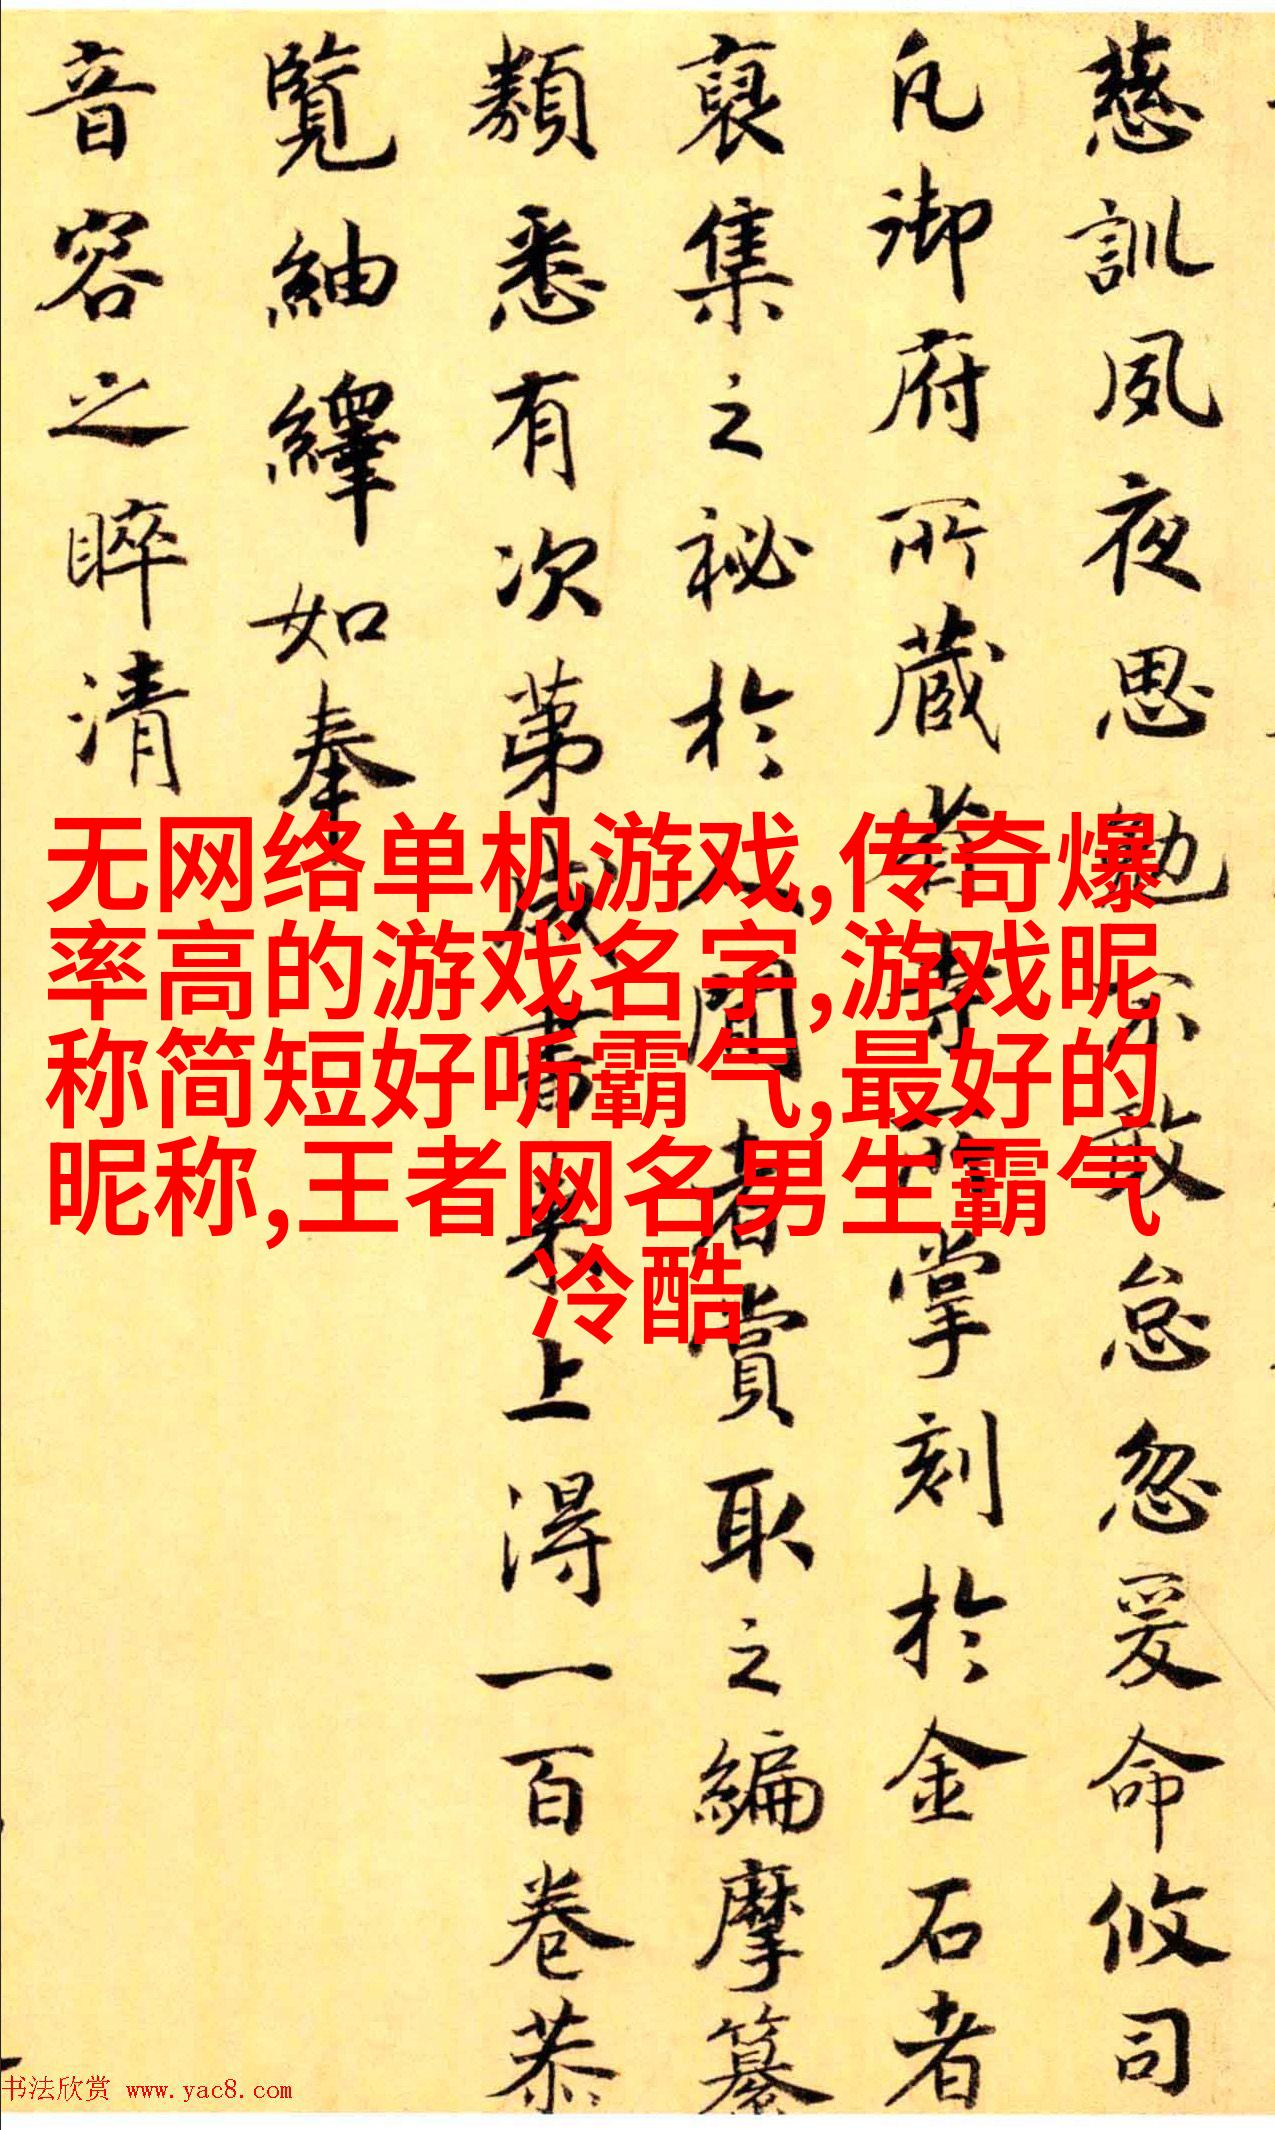 慈訓夙夜思勉不敢怠忽爰命攸司
凡御府所藏所掌刻於金石者
裒集之祕於人聞者賞取之編摩纂
類悉有次第成書來上得一百卷恭
覽紬繹如奉
音容之睟清
无网络单机游戏,传奇爆
率高的游戏名字,游戏昵
称简短好听霸气,最好的
昵称,王者网名男生霸气
冷酷
书法欣赏 www.yac8.com